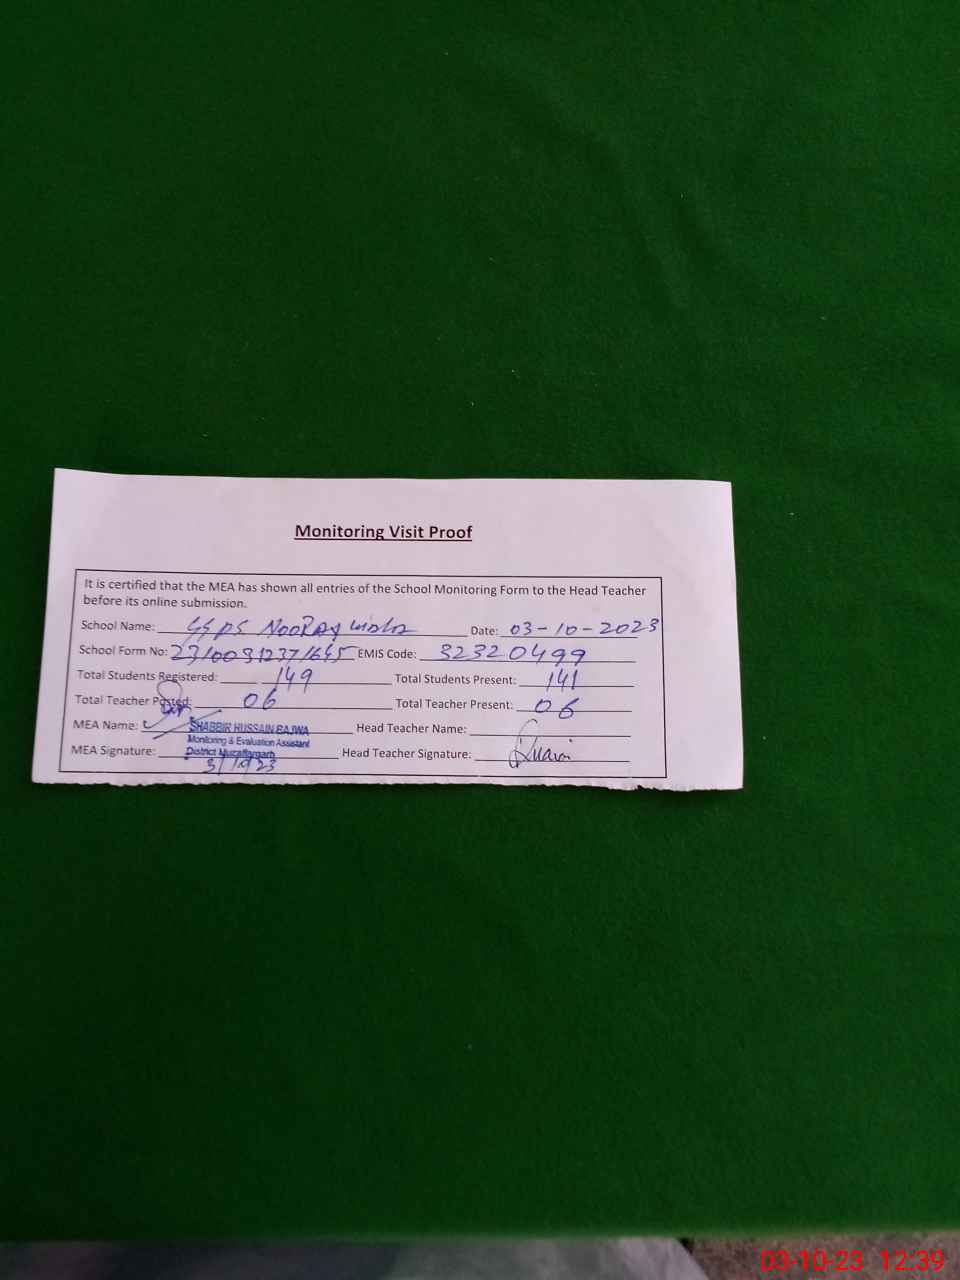 Monitoring Visit Proof
It is certified that the MEA has shown all entries of the School Monitoring Form to the Head Teacher
before its online submission.
School Name: GGPS Date: 03-10-2023
School Form No: EMIS Code: 32320499
Total Students Registered: 149 Total Students Present: 141
Total Teacher Posted: 06 Total Teacher Present: 06
MEA Name: SHABBIR HUSSAIN BAJWA Head Teacher Name:
Monitoring & Evaluation Assistant
MEA Signature: District Muzaffargarh Head Teacher Signature:
3/10/23
03-10-23 12:39